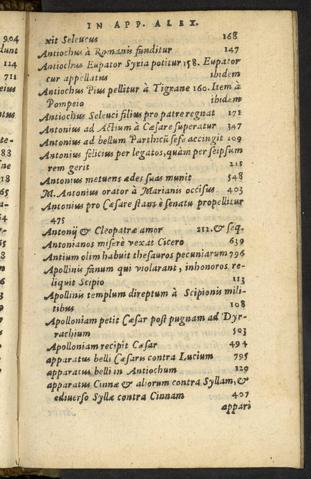 IN APP. ALEX.
xit Seleucus 168
Antiochus à Romanis funditur 147
Antiochus Eupator Syria potitur 158. Eupator
cur appellatus ibidem
Antiochus Pius pellitur à Tigrane 160. Item à
Pompeio ibidem
Antiochus Seleuci filius pro patre regnat 171
Antonius ad Actium à Cæsare superatur 347
Antonius ad bellum Parthicũ sese accingit 109
Antonius felicius per legatos, quàm per seipsum
rem gerit 215
Antonius metuens ædes suas munit 548
M. Antonius orator à Marianis occisus 403
Antonius pro Cæsare stans è senatu propellitur
475
Antonij & Cleopatræ amor 211. & seq.
Antonianos miserè vexat Cicero 639
Antium olim habuit thesauros pecuniarum 796
Apollinis fanum qui violarant, inhonoros re-
liquit Scipio 113
Apollinis templum direptum à Scipionis mili-
tibus 108
Apolloniam petit Cæsar post pugnam ad Dyr-
rachium 503
Apolloniam recipit Cæsar 494
apparatus belli Cæsaris contra Lucium 795
apparatus belli in Antiochum 129
apparatus Cinnæ & aliorum contra Syllam, &
ediuerso Syllæ contra Cinnam 407
appari
904
dunt
114
711
eius